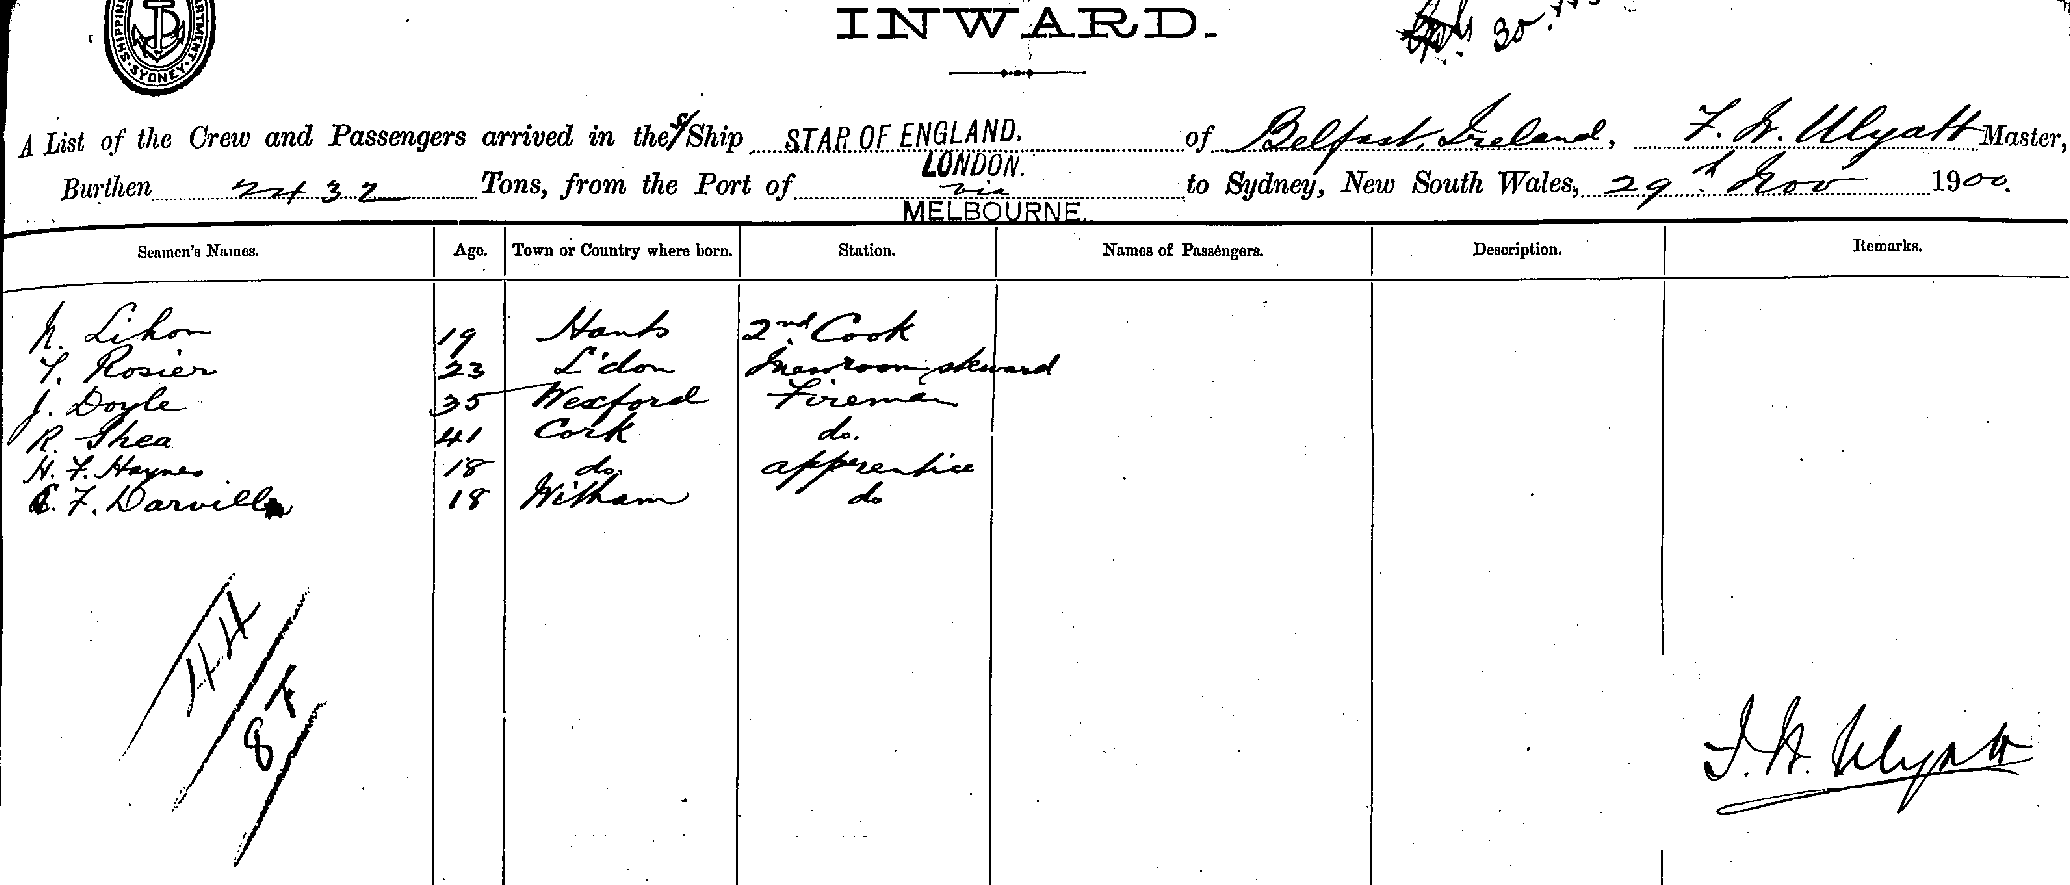 SHIPPING DEPARTMENT SYDNEY
INWARD.
30.
A List of the Crew and Passengers arrived in the s/Ship STAR OF ENGLAND. of Belfast, Ireland, F. W. Ulyatt Master,
Burthen 2432 Tons, from the Port of LONDON. via MELBOURNE. to Sydney, New South Wales, 29th Nov 1900.
Seamen's Names. Age. Town or Country where born. Station. Names of Passengers. Description. Remarks.
N. Lihou 19 Hants 2nd Cook
F. Rosier 23 L'don Messroom steward
J. Doyle 35 Wexford Fireman
R. Shea 41 Cork do.
H. F. Haynes 18 do apprentice
F. Darvill 18 Witham do
44
84
F. W. Ulyatt